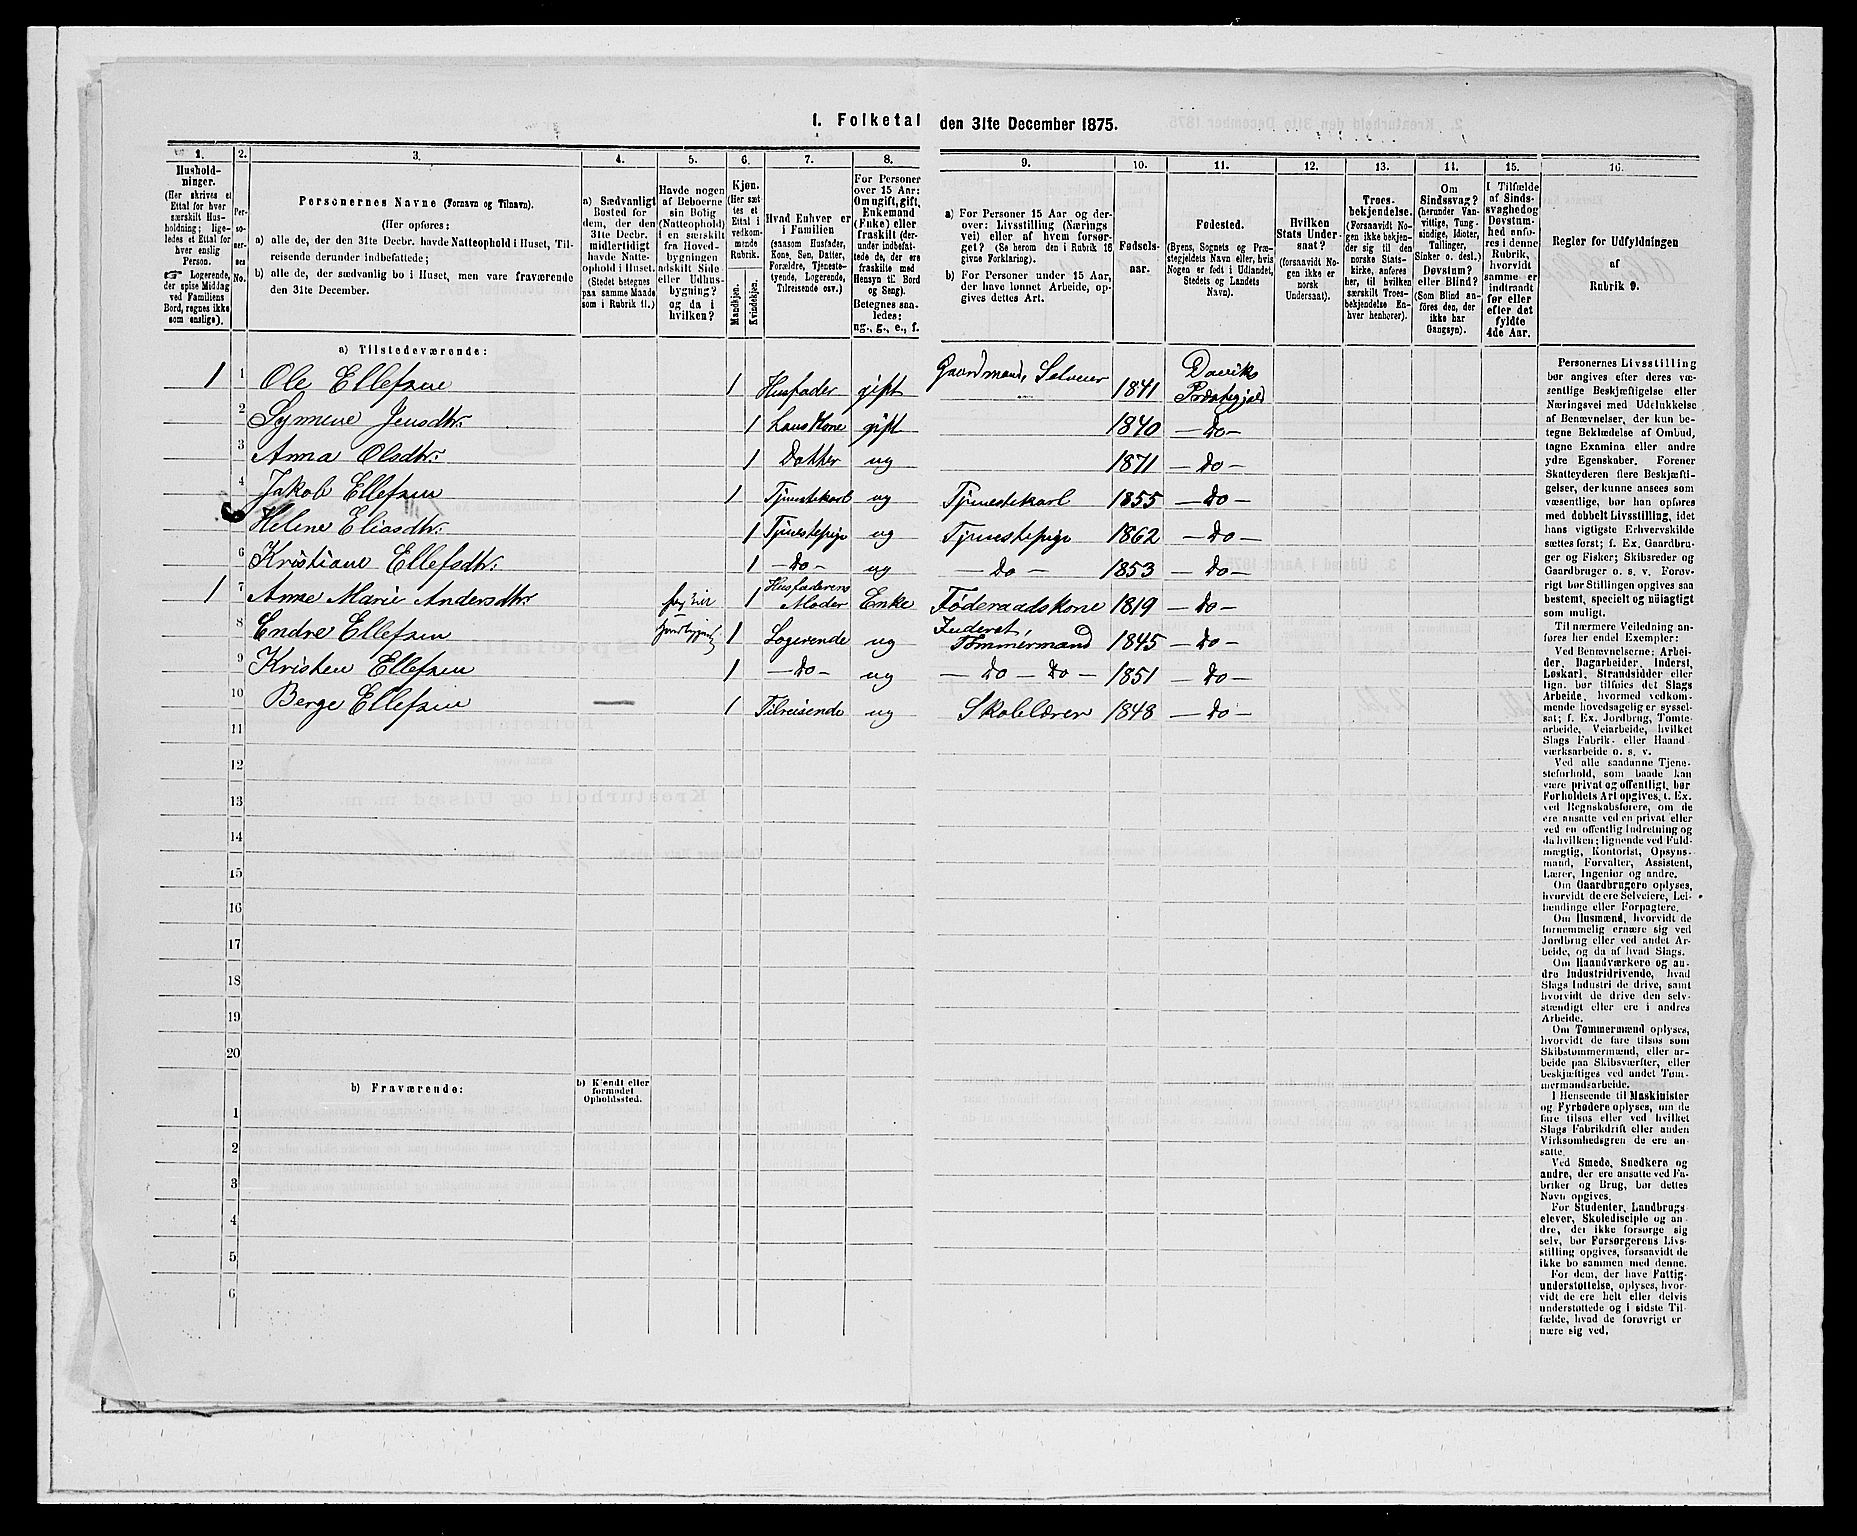 1. Folketal den 31te December 1875.
1. 2. 3. 4. 5. 6. 7. 8. 9. 10. 11. 12. 13. 14. 15. 16.
Hushold-
ninger.
(Her skrives et
Ettal for hver
særskilt Hus-
holdning; lige-
ledes et Ettal for
hver enslig
Person.
☞ Logerende,
der spise Middag
ved Familiens
Bord, regnes ikke
som enslige).
Per-
so-
ner-
nes
No.
Personernes Navne (Fornavn og Tilnavn).
(Her opføres:
a) alle de, der den 31te Decbr. havde Natteophold i Huset, Til-
reisende derunder indbefattede;
b) alle de, der sædvanlig bo i Huset, men vare fraværende
den 31te December.
a) Sædvanligt
Bosted for
dem, der den
31te Decbr.
midlertidigt
havde Natte-
ophold i Huset.
(Stedet betegnes
paa samme Maade
som i Rubrik 11.)
Havde nogen
af Beboerne
sin Bolig
(Natteophold)
i en særskilt
fra Hoved-
bygningen
adskilt Side-
eller Udhus-
bygning?
og da i
hvilken?
Kjøn.
(Her sæt-
tes et
Ettal i
vedkom-
mende
Rubrik.
Mandkjøn.
Kvindekjøn.
Hvad Enhver er
i Familien
(saasom Husfader,
Kone, Søn, Datter,
Forældre, Tjeneste-
tyende, Logerende,
Tilreisende osv.)
For Personer
over 15 Aar:
Om ugift, gift,
Enkemand
(Enke) eller
fraskilt (der-
under indbefat-
tede de, der ere
fraskilte med
Hensyn til Bord
og Seng).
Betegnes saa-
ledes:
ug., g., e., f.
a) For Personer 15 Aar og der-
over: Livsstilling (Nærings
vei) eller af hvem forsør-
get? (Se herom den i Rubrik 16
givne Forklaring).
b) For Personer under 15 Aar,
der have lønnet Arbeide, op-
gives dettes Art.
Fødsels-
aar.
Fødested.
(Byens, Sognets og Præ-
stegjeldets Navn eller, hvis
Nogen er født i Udlandet,
Stedets og Landets
Navn).
Hvilken
Stats Under-
saat?
(forsaavidt No-
gen ikke er
norsk
Undersaat).
Troes-
bekjendelse.
(Forsaavidt No-
gen ikke bekjen-
der sig til den
norske Stats-
kirke, anføres
her, til hvilken
særskilt Troes-
bekjendelse En-
hver henhører).
Om
Sindssvag?
(herunder Van-
vittige, Tung-
sindige, Idioter,
Tullinger,
Sinker o. desl.)
Døvstum?
eller Blind?
(Som Blind an-
føres den, der
ikke har
Gangsyn).
I Tilfælde
af Sinds-
svaghed og
Døvstum-
hed anfø-
res i denne
Rubrik,
hvorvidt
samme er
indtraadt
før eller
efter det
fyldte
4de Aar.
Regler for Udfyldningen
af
Rubrik 9.
a) Tilstedeværende:
1 1 Ole Ellefsen 1 Husfader gift Gaardmand, Selveier 1841 Daviks Præstegjeld
2 Symene Jensdtr. 1 hans Kone gift 1840 — Do —
3 Anna Olsdtr. 1 Datter ug 1871 — Do —
4 Jakob Ellefsen 1 Tjenestekarl ug Tjenestekarl 1855 — Do —
Helene Eliasdtr. 1 Tjenestepige ug Tjenestepige 1862 — Do —
6 Kristiane Ellefsdtr. 1 — Do — ug — Do — 1853 — Do —
1 7 Anne Marie Andersdtr. 1 Husfaderens Moder Enke Føderaadskone 1819 — Do —
8 Endre Ellefsen 1 Logerende ug Inderst, Tømmermand 1845 — Do —
9 Kristen Ellefsen 1 — Do — ug — Do — Do — 1851 — Do —
10 Berge Ellefsen — 1 Tilreisende ug Skolelærer 1848 — Do —
11
12
13
14
15
16
17
18
19
20
b) Fraværende:
b) Kjendt eller
formodet
Opholdssted.
1
2
3
4
5
6
Personernes Livsstilling
bør angives efter deres væ-
sentlige Beskjæftigelse eller
Næringsvei med Udelukkelse
af Benævnelser, der kun be-
tegne Beklædelse af Ombud,
tagne Examina eller andre
ydre Egenskaber. Forener
Skatteyderen flere Beskjæfti-
gelser, der kunne ansees som
væsentlige, bør han opføres
med dobbelt Livsstilling, idet
hans vigtigste Erhvervskilde
sættes først; f. Ex. Gaardbru-
ger og Fisker; Skibsreder og
Gaardbruger o. s. v. Forøv-
rigt bør Stillingen opgives saa
bestemt, specielt og nøiagtigt
som muligt.
Til nærmere Veiledning an-
føres her endel Exempler:
Ved Benævnelserne: Arbei-
der, Dagarbeider, Inderst,
Løskarl, Strandsidder eller
lign. bør tilføies det Slags
Arbeide, hvormed vedkom-
mende hovedsagelig er syssel-
sat; f. Ex. Jordbrug, Tomte-
arbeide, Veiarbeide, hvilket
Slags Fabrik- eller Haand-
værksarbeide o. s. v.
Ved alle saadanne Tjene-
steforhold, som baade kan
være privat og offentligt, bør
Forholdets Art opgives, t. Ex.
ved Regnskabsførere, om de
ere ansatte ved en privat eller
ved en offentlig Indretning og
da hvilken; lignende ved Fuld-
mægtig, Kontorist, Opsyns-
mand, Forvalter, Assistent,
Lærer, Ingeniør og andre.
Om Gaardbrugere oplyses,
hvorvidt de ere Selveiere, Lei-
lændinge eller Forpagtere.
Om Husmænd, hvorvidt de
fornemmelig ernære sig ved
Jordbrug eller ved andet Ar-
beide, og da af hvad Slags.
Om Haandværkere og an-
dre Industridrivende, hvad
Slags Industri de drive, samt
hvorvidt de drive den selv-
stændigt eller ere i andres
Arbeide.
Om Tømmermænd oplyses,
hvorvidt de fare tilsøs som
Skibstømmermænd, eller ar-
beide paa Skibsværfter, eller
beskjæftiges ved andet Tøm-
mermandsarbeide.
I Henseende til Maskinister
og Fyrbødere oplyses, om de
fare tilsøs eller ved hvilket
Slags Fabrikdrift eller anden
Virksomhedsgren de ere an-
satte.
Ved Smede, Snedkere og
andre, der ere ansatte ved Fa-
briker og Brug, bør dettes
Navn opgives.
For Studenter, Landbrugs-
elever, Skoledisciple og an-
dre, der ikke forsørge sig
selv, bør Forsørgerens Livs-
stilling opgives, forsaavidt de
ikke bo sammen med denne.
For dem, der have Fattig-
understøttelse, oplyses, hvor-
vidt de ere helt eller delvis
understøttede og i sidste Til-
fælde, hvad de forøvrigt er-
nære sig ved.